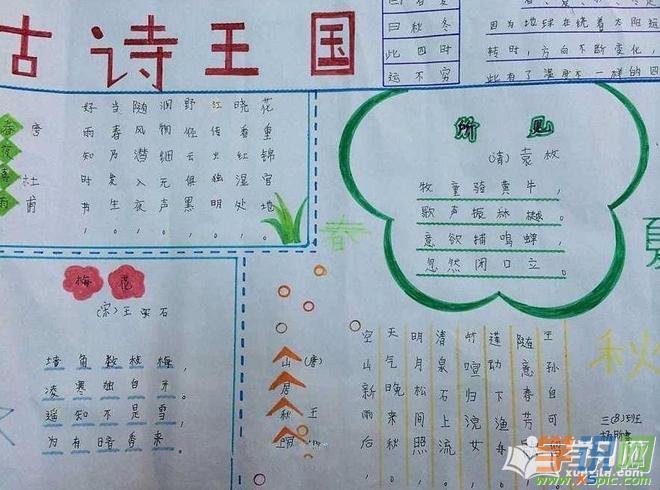 古诗王国
曰秋冬
此四时
运不穷
因为地球在绕着太阳远
转时，方向不断变化，
此有了温度不一样的四
春夜喜雨
唐 杜甫
好雨知时节，
当春乃发生。
随风潜入夜，
润物细无声。
野径云俱黑，
江船火独明。
晓看红湿处，
花重锦官地。
所见
(清)袁枚
牧童骑黄牛，
歌声振林樾。
意欲捕鸣蝉，
忽然闭口立。
春
夏
秋
梅花
(宋)王安石
墙角数枝梅，
凌寒独自开。
遥知不是雪，
为有暗香来。
山居秋暝
(唐)王
空山新雨后
天气晚来秋
明月松间照
清泉石上流
竹喧归浣女
莲动下渔舟
随意春芳歇
王孙自可
三(8)班
学识网
xuexila.com
xspic.com